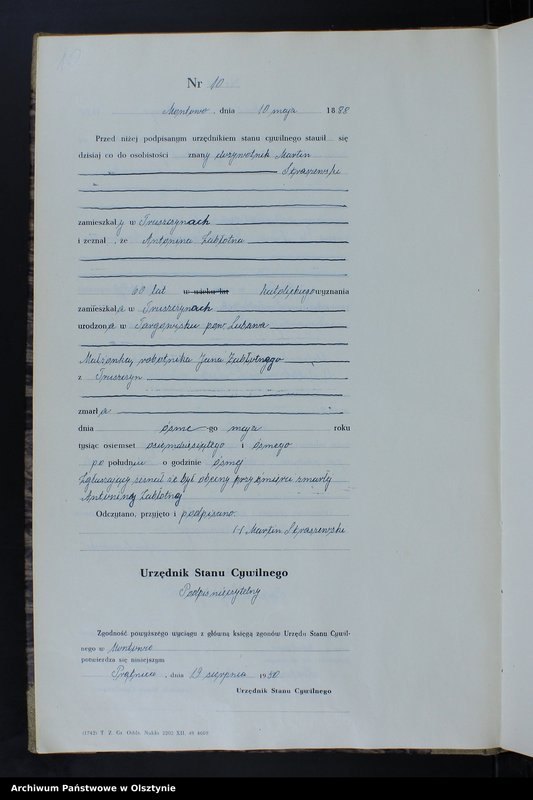 Nr 10
Montowo, dnia 10 maja 1888
Przed niżej podpisanym urzędnikiem stanu cywilnego stawił się
dzisiaj co do osobistości znany dożywotnik Martin
zamieszkały w Truszczynach
i zeznał, że Antonina Zabłotna
60 lat w wieku lat katolickiego wyznania
zamieszkała w Truszczynach
urodzona w Targowisku pow. Lubawa
Małżonka robotnika Jana Zabłotnego
z Truszczyn
zmarła
dnia ósme-go maja roku
tysiąc osiemset osiemdziesiątego i ósmego
po południu o godzinie ósmej
Zgłaszający zeznał że był obecny przy śmierci zmarłej
Antoniny Zabłotnej
Odczytano, przyjęto i podpisano.
(-) Martin
Urzędnik Stanu Cywilnego
Podpis nieczytelny
Zgodność powyższego wyciągu z główną księgą zgonów Urzędu Stanu Cywil-
nego w Montowie
potwierdza się niniejszym
Prątnica, dnia 19 sierpnia 1950
Urzędnik Stanu Cywilnego
(1742) T. Z. Gr. Oddz. Nakło 2202 XII. 49 4669
Archiwum Państwowe w Olsztynie